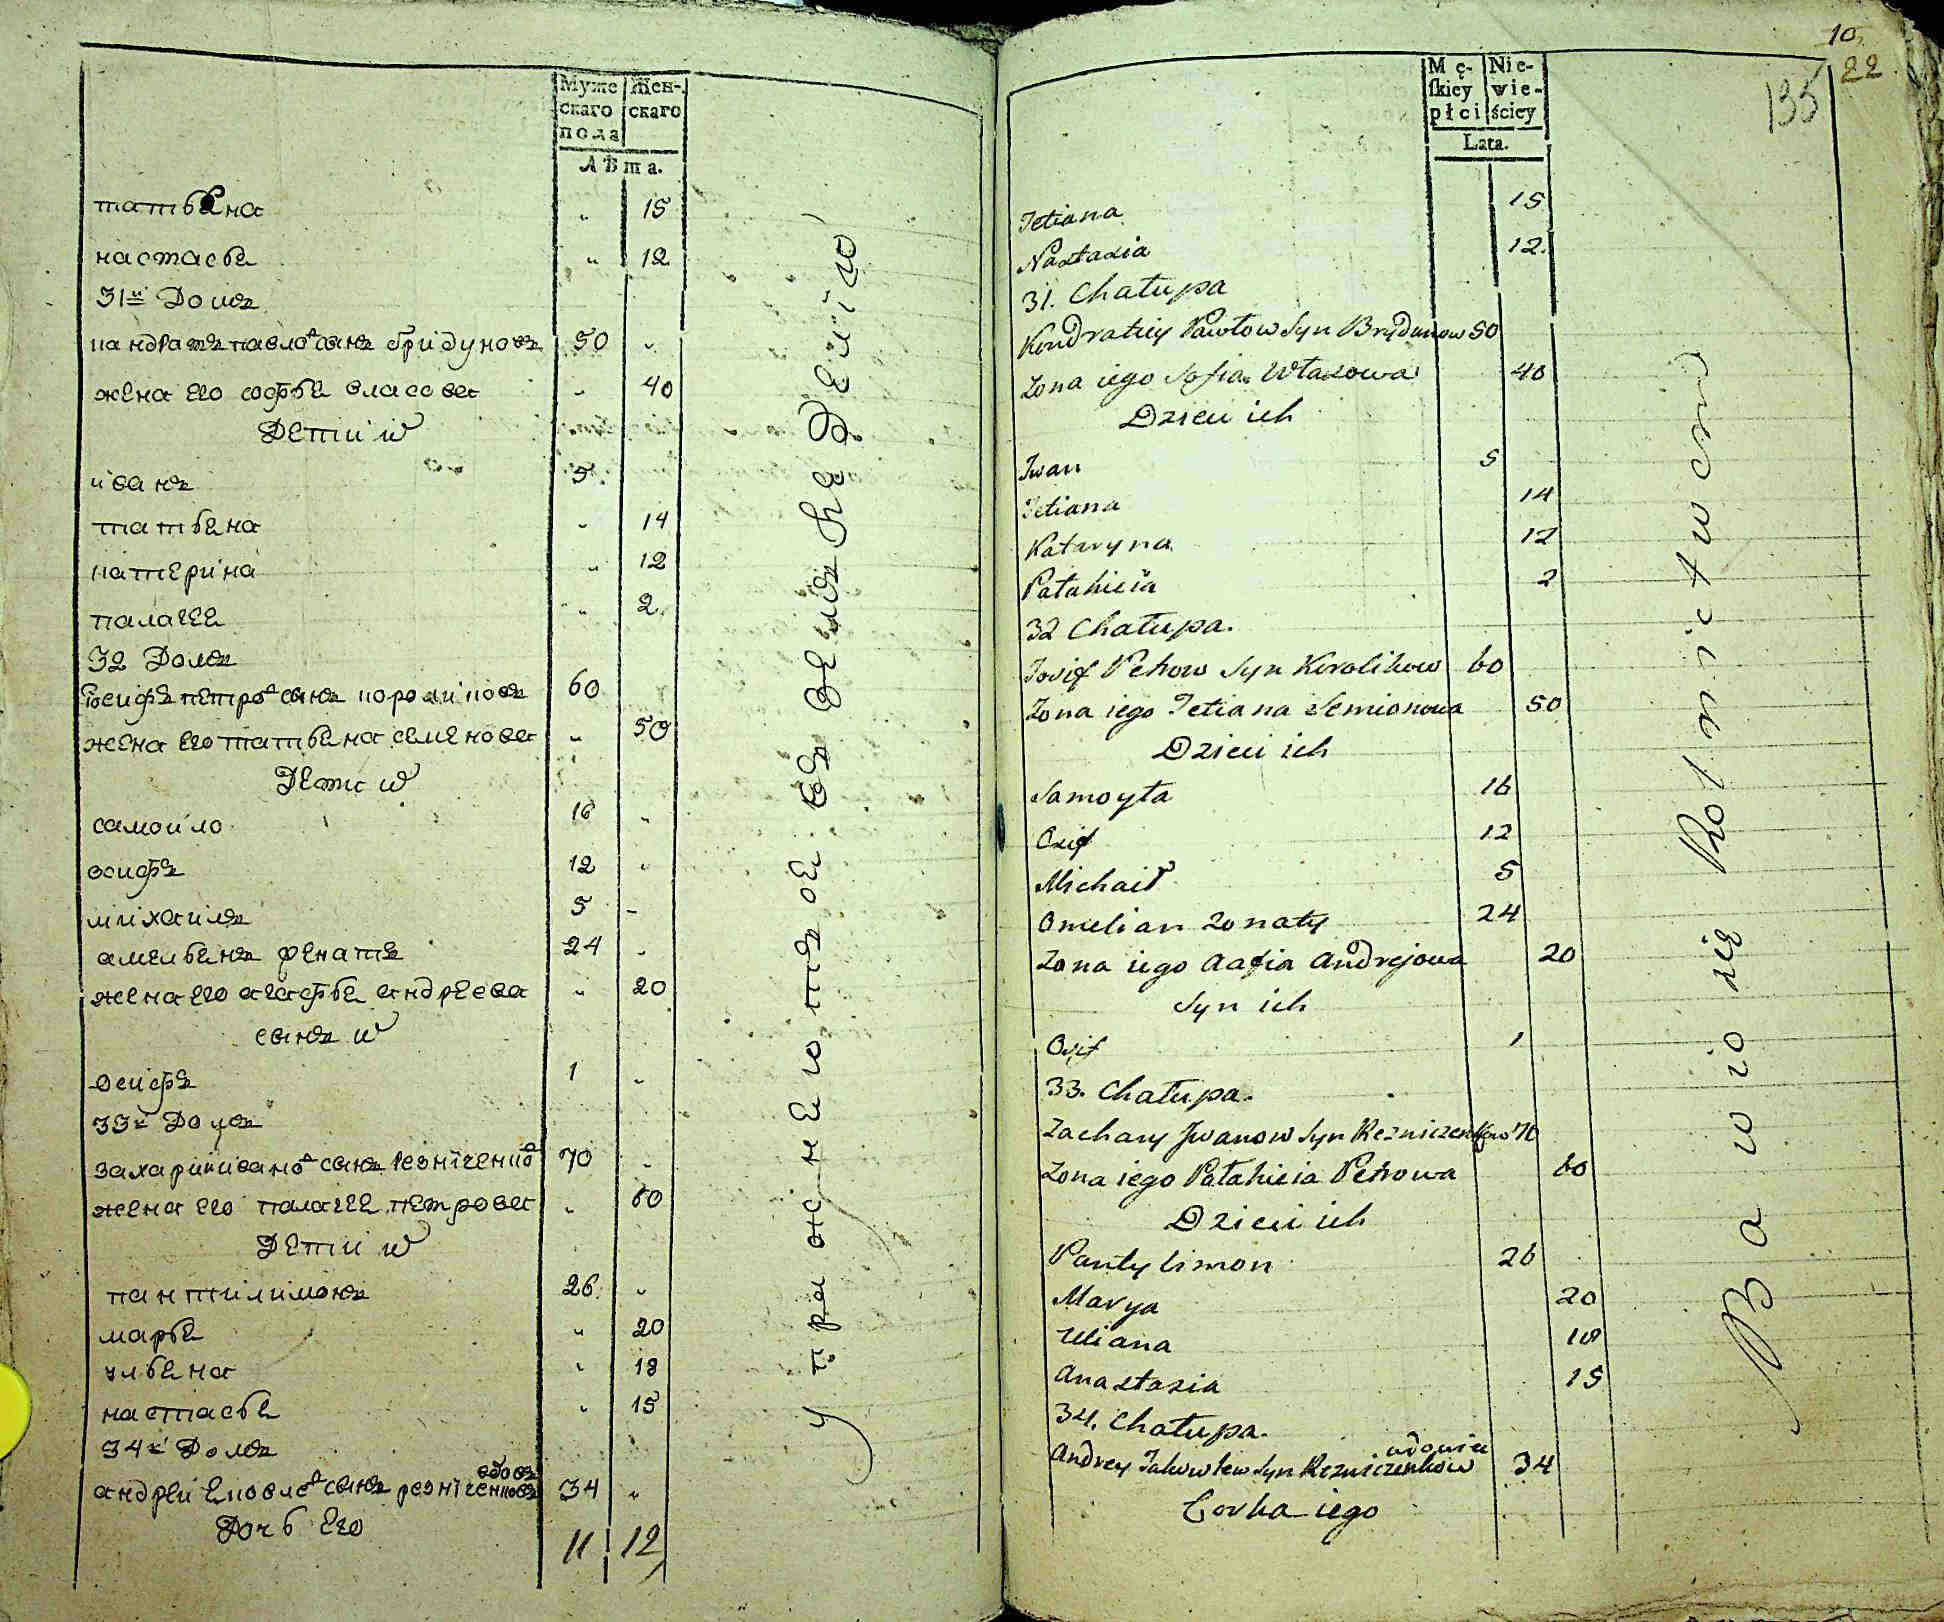 Муже
скаго
пола
Жен-
скаго
Лѣта.
татьяна " 15
настасья " 12
31й Домъ
кандратъ павловъ сынъ бридуновъ 50 "
жена его софья власова " 40
Дети ихъ
иванъ 5
татьяна " 14
катерина " 12
палагея " 2
32 Домъ
Iосифъ петровъ сынъ короликовъ 60
жена его татьяна семенова " 50
Дети ихъ
самойло 16 "
осифъ 12 "
михаилъ 5 -
амельянъ женатъ 24 "
жена его агафья андреева " 20
сынъ ихъ
осифъ 1 "
33й Домъ
захарий ивановъ сынъ резніченко 70 "
жена его палагея петрова " 60
Дети ихъ
пантилимонъ 26 "
марья " 20
ульяна " 18
настасья " 15
34й Домъ
вдовъ
андрей яковлевъ сынъ резніченковъ 34 "
Дочь его
11 12
упражнеются въ земледелию
10.
22
135
Mę-
skiey
płci
Nie-
wie-
ściey
Lata.
Tetiana 15
Nastasia 12.
31. Chałupa
Kondratiy Pawłow Syn Brydunow 50
Zona iego Sofia Własowa 40
Dzieci ich
Iwan 5
Tetiana 14
Kataryna 12
Pałahieia 2
32 Chałupa.
Iosif Petrow Syn Korolikow 60
Zona iego Tetiana Semionowa 50
Dzieci ich
Samoyła 16
Osif 12
Michaił 5
Omelian żonaty 24
Zona iego Aafia Andrejowa 20
Syn ich
Osif 1
33. Chałupa.
Zachary Iwanow Syn Rezniczenkow 70
Zona iego Pałahieia Petrowa 60
Dzieci ich
Pantylimon 26
Marya 20
Uliana 18
Anastasia 15
34. Chałupa.
wdowiec
Andrey Jakowlew Syn Rezniczenkow 34
Corka iego
Bawio się Rolnictwem